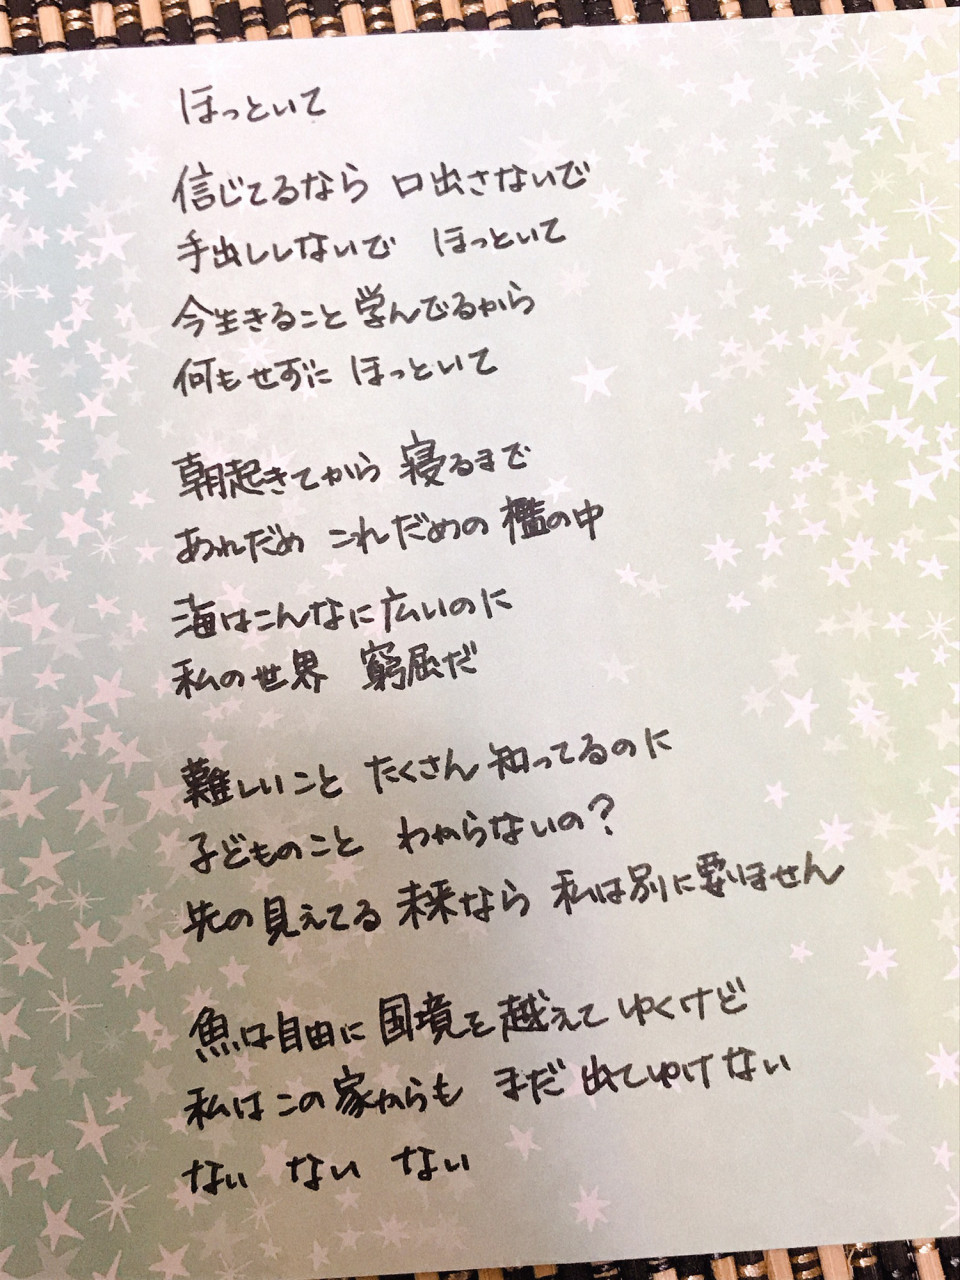 ほっといて
信じてるなら 口出さないで
手出ししないで ほっといて
今生きること学んでるから
何もせずに ほっといて
朝起きてから 寝るまで
あれだめ これだめの 檻の中
海はこんなに広いのに
私の世界 窮屈だ
難しいこと たくさん知ってるのに
子どものこと わからないの?
先の見えてる 未来なら 私は別に要りません
魚は自由に 国境を越えて ゆくけど
私はこの家からも まだ出てゆけない
ない ない ない